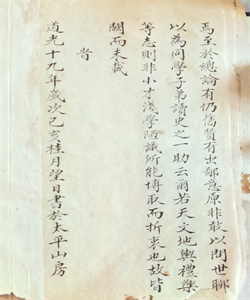 焉至於總論有仍舊貫有出鄙意原非敢以問世聊
以為同學子弟讀史之一助云爾若天文地輿禮樂
等志則非小才淺學陋識所能博取而折衷也故皆
闕而未載
旹
道光十九年歲次己亥桂月望日書於太平山房